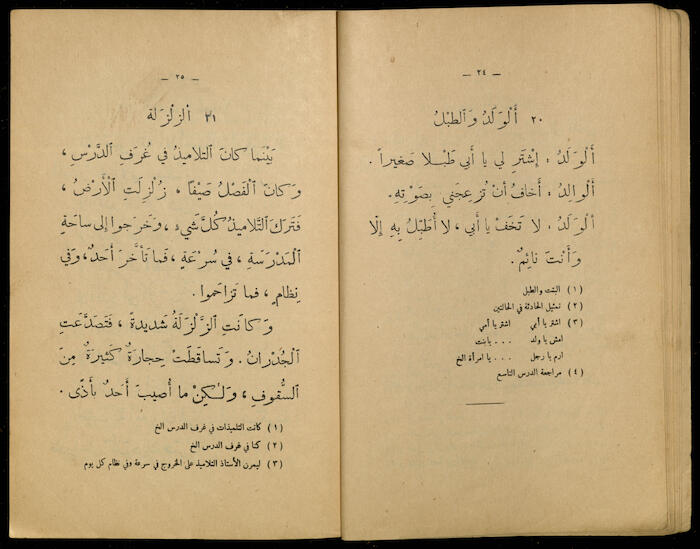 — ٢٤ —
٢٠ أَلْوَلَدُ وَالطَّبْلُ
أَلْوَلَدُ : إِشْتَرِ لِي يَا أَبِي طَبْلًا صَغِيراً .
أَلْوَالِدُ : أَخَافُ أَنْ تُزْعِجَنِي بِصَوْتِهِ .
أَلْوَلَدُ : لَا تَخَفْ يَا أَبِي ، لَا أُطَبِّلُ بِهِ إِلَّا
وَأَنْتَ نَائِمٌ .
(١) البنت والطبل
(٢) تمثيل الحادثة في الحالتين
(٣) اشتر يا أبي اشتر يا أمي
امش يا ولد . . . يا بنت
ارم يا رجل . . . يا امرأة الخ
(٤) مراجعة الدرس التاسع
— ٢٥ —
٢١ أَلزَّلْزَلَة
بَيْنَما كانَ التَّلاميذُ في غُرَفِ الدَّرْسِ ،
وَكانَ الْفَصْلُ صَيْفًا ، زُلْزِلَتِ الْأَرْضُ ،
فَتَرَكَ التَّلاميذُ كُلَّ شَيْءٍ ، وَخَرَجوا إِلى ساحَةِ
الْمَدْرَسَةِ ، في سُرْعَةٍ ، فَما تَأَخَّرَ أَحَدٌ ، وَفي
نِظامٍ ، فَما تَزاحَموا .
وَكانَتِ الزَّلْزَلَةُ شَديدَةً ، فَتَصَدَّعَتِ
الْجُدْرانُ . وَتَساقَطَتْ حِجارَةٌ كَثيرَةٌ مِنَ
السُّقوفِ ، وَلٰكِنْ ما أُصيبَ أَحَدٌ بِأَذًى .
(١) كانت التلميذات في غرف الدرس الخ
(٢) كنا في غرف الدرس الخ
(٣) ليمرن الأستاذ التلاميذ على الخروج في سرعة وفي نظام كل يوم